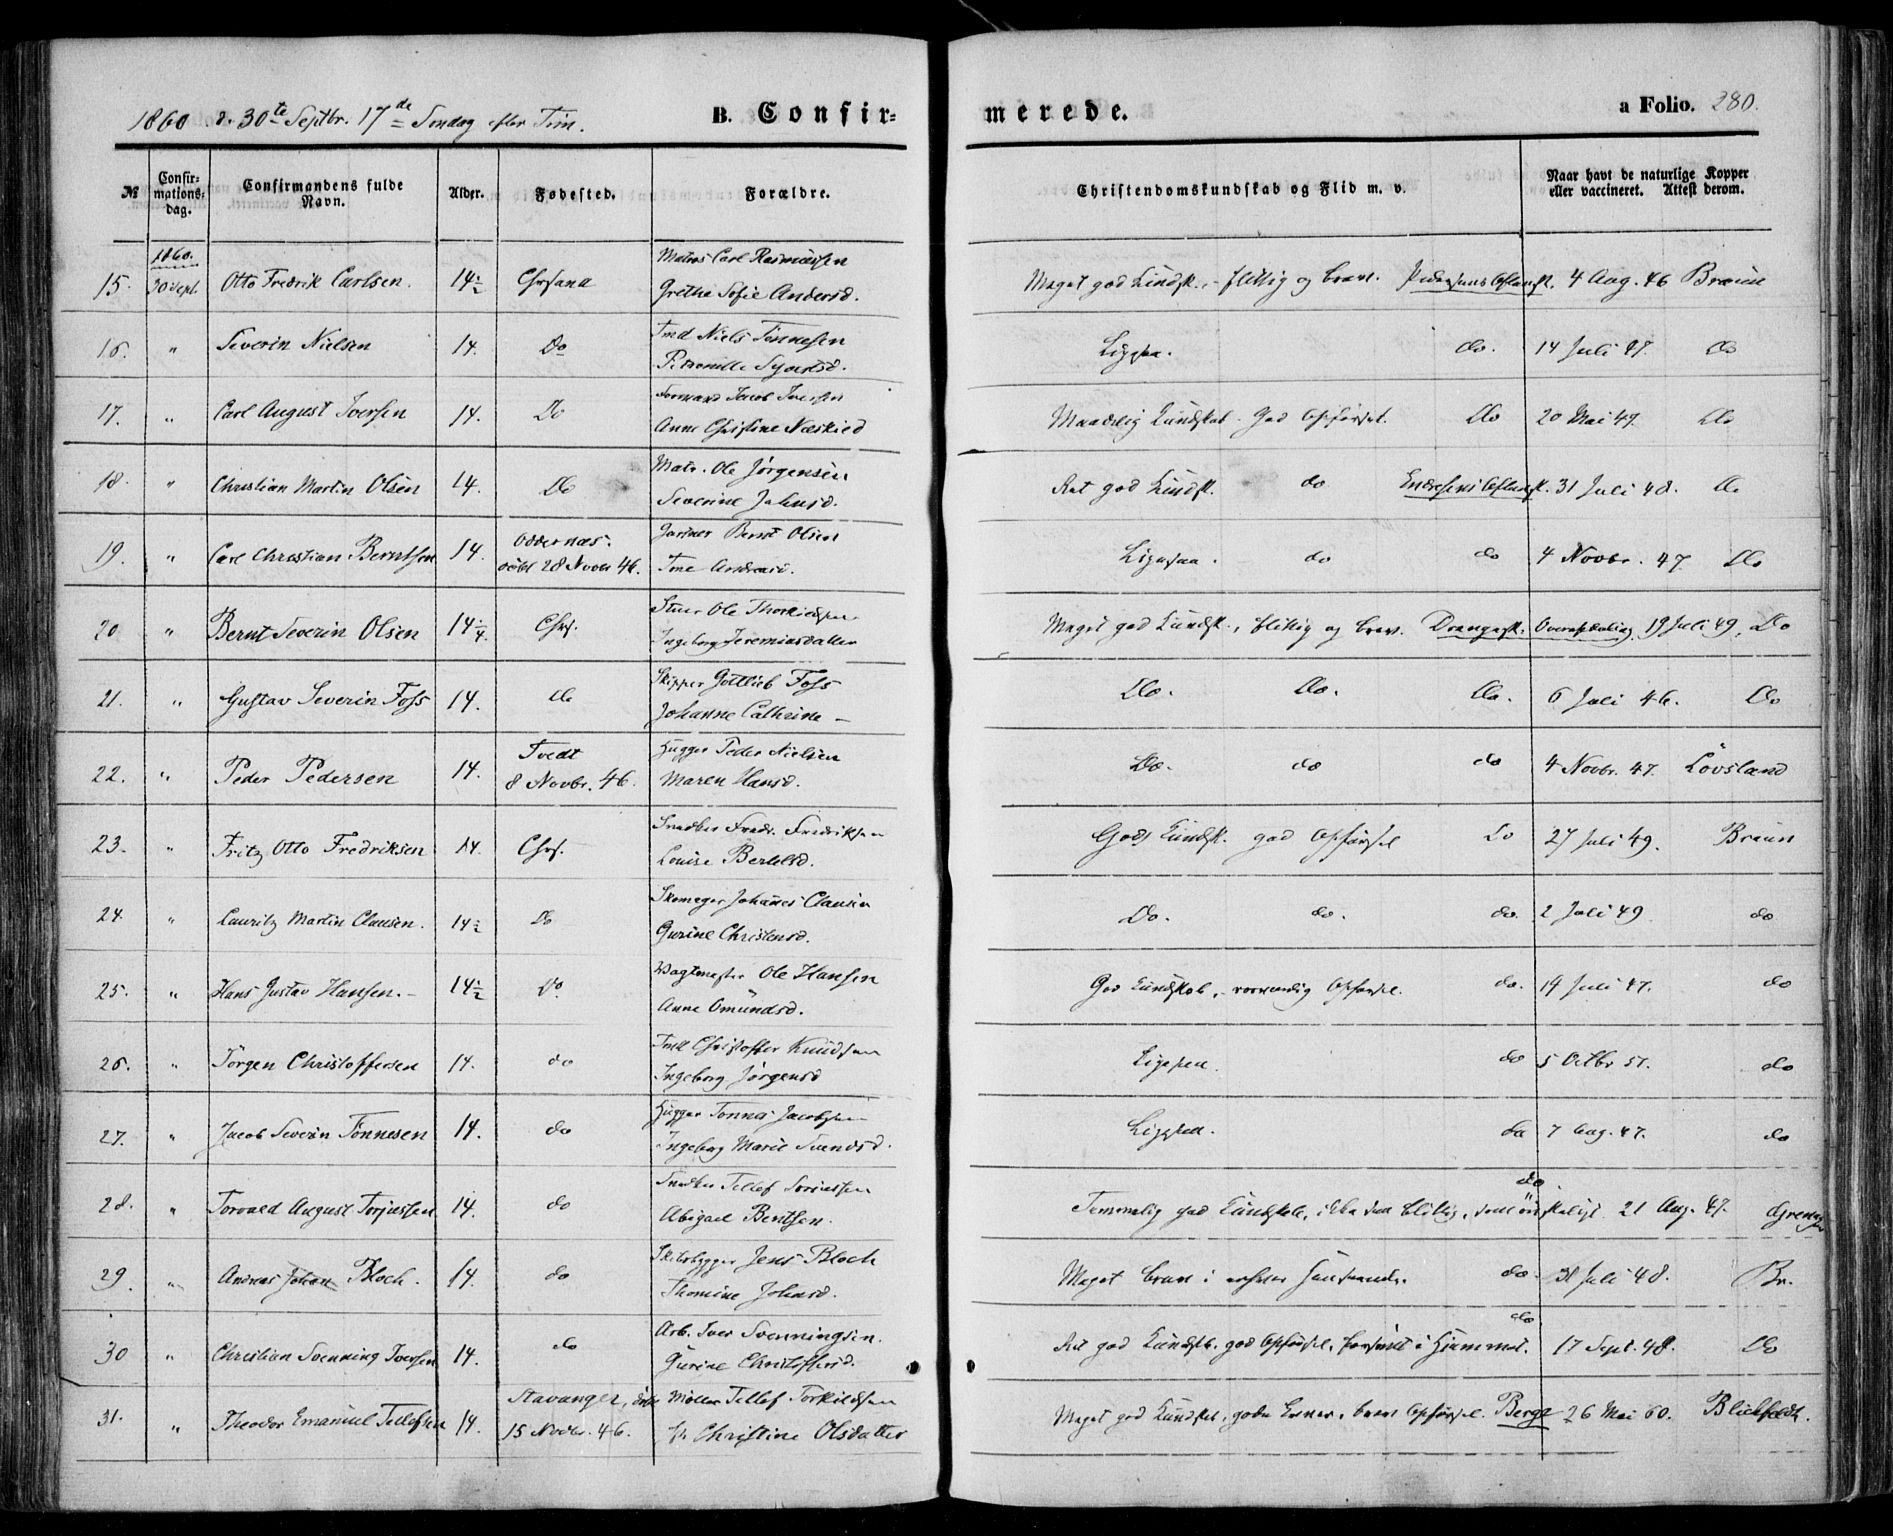 1860 d. 30te Septbr. 17de Søndag efter Trin.
B. Confirmerede.
a Folio. 280.
№ Confirmationsdag. Confirmandens fulde Navn. Alder. Fødested. Forældre. Christendomskundskab og Flid m. v. Naar havt de naturlige Kopper eller vaccineret. Attest derom.
1860.
Matros Carl Rasmussen
15. 30 Sept. Otto Fredrik Carlsen. 14½ Chrsand Meget god Kundsk., flittig og brav. 4 Aug. 46 Braun
Grethe Sofie Andersd.
Niels Tønnesen
16. " Severin Nielsen 14. Do Ligesaa. do. 14 Juli 47. Do
Petronille
Jacob Iversen
17. " Carl August Iversen 14. Do Maadelig Kundskab. God Opførsel. Do 20 Mai 47. Do
Anne Christine
Matr. Ole Jørgensen
18. " Christian Martin Olsen 14. Do Ret god Kundsk. do 31 Juli 48. Do
Severine Johnsd.
Gartner Bernt Olsen
19. " Carl Christian Berntsen 14. Oddernæs. Ligesaa. do do 4 Novbr. 47 Do
28 Novbr 46. Andreasd.
Ole Thorkildsen
20 " Bernt Severin Olsen 14¼ Chrs. Meget god Kundsk., flittig og brav. 19 Juli 49, Do
Ingeborg Jeremiasdatter
Skipper Gottlieb Foss
21. " Gustav Severin Foss 14. do Do. Do. Do. 6 Juli 46. Do
Johanne Cathrine —
Tvedt Hugger Peder Nielsen
22. " Peder Pedersen 14. Do. do do 4 Novbr. 47. Lövsland
8 Novbr. 46. Maren Hansd.
Snedker Fredr. Fredriksen
23. " Fritz Otto Fredriksen 14. Chrs. God Kundsk. god Opførsel Do 27 Juli 49. Braun
Louise Bertelsd.
Skomager Johannes Clausen
24. " Lauritz Martin Clausen. 14½ Do Do. do. do. 2 Juli 49 do
Gurine Christensd.
Vagtmester Ole Hansen
25. " Hans Gustav Hansen. 14½ Do. God Kundskab, Opførsel. do. 19 Juli 47. do
Anne Omundsd.
Christoffer Knudsen
26. " Jörgen Christoffersen 14. do Ligesaa. do 5 Octbr 51. do
Ingeborg Jørgensd
Hugger Tønnes Jacobsen
27. " Jacob Severin Tönnesen 14. do Ligesaa. do 7 Aug. 47. do
Ingeborg Marie Svendsd.
Snedker Tellef Torjussen do.
28. " Torvald August Torjussen 14. do Temmelig god Kundskab, ikke saa flittig, som ønskeligt 21 Aug. 47.
Abigael Bentsen.
Skibsbygger Jens Bloch
29 " Andreas Johan Bloch. 14. do Meget brav i enhver Henseende. do. 31 Juli 48. Br.
Thomine Johnsd.
Arb. Iver Svenningsen. do
30 " Christian Svenning Iversen 14. do Ret god Kundsk. god Opførsel, forsømt i Hjemmet. 17 Sept. 48. Do
Gurine Christoffersd.
Stavanger, døbt Møller Tellef Torkildsen
31. " Theodor Emanuel Tellefsen 14. Meget god Kundskab, gode Evner, brav Opførsel. Berge 26 Mai 60. Blickfeldt.
15 Novbr. 46. Christine Olsdatter